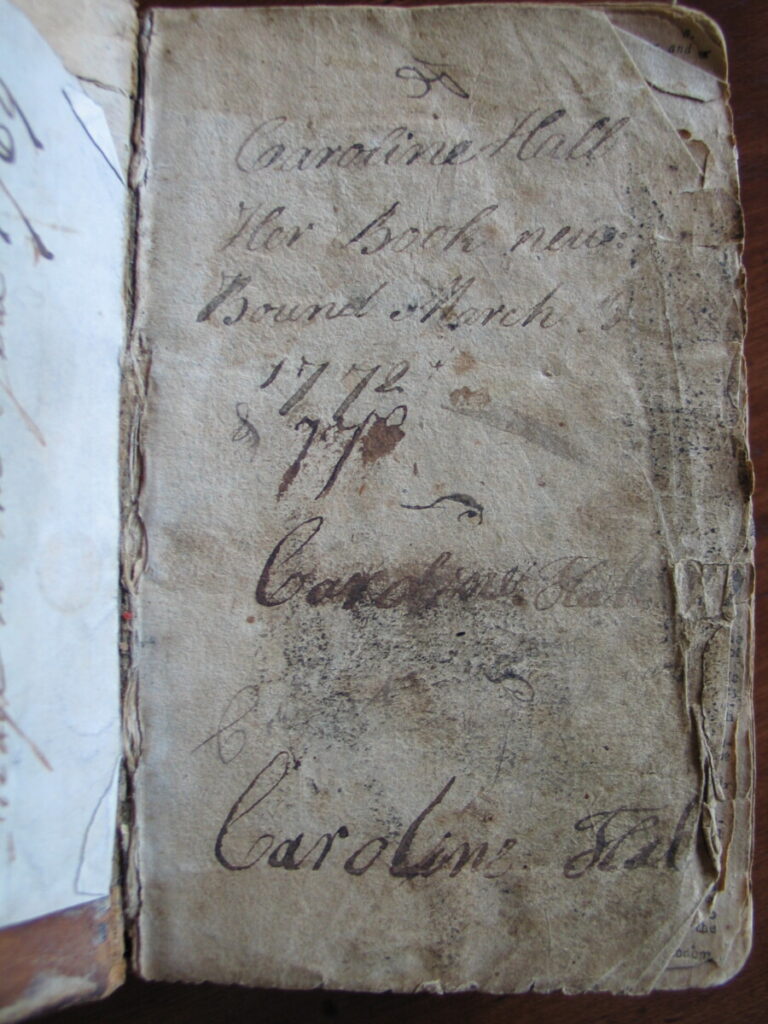 Caroline Hall
Her Book new
Bound March 3
1772
& 77
Caroline Hall
C
Caroline Hal
and
the